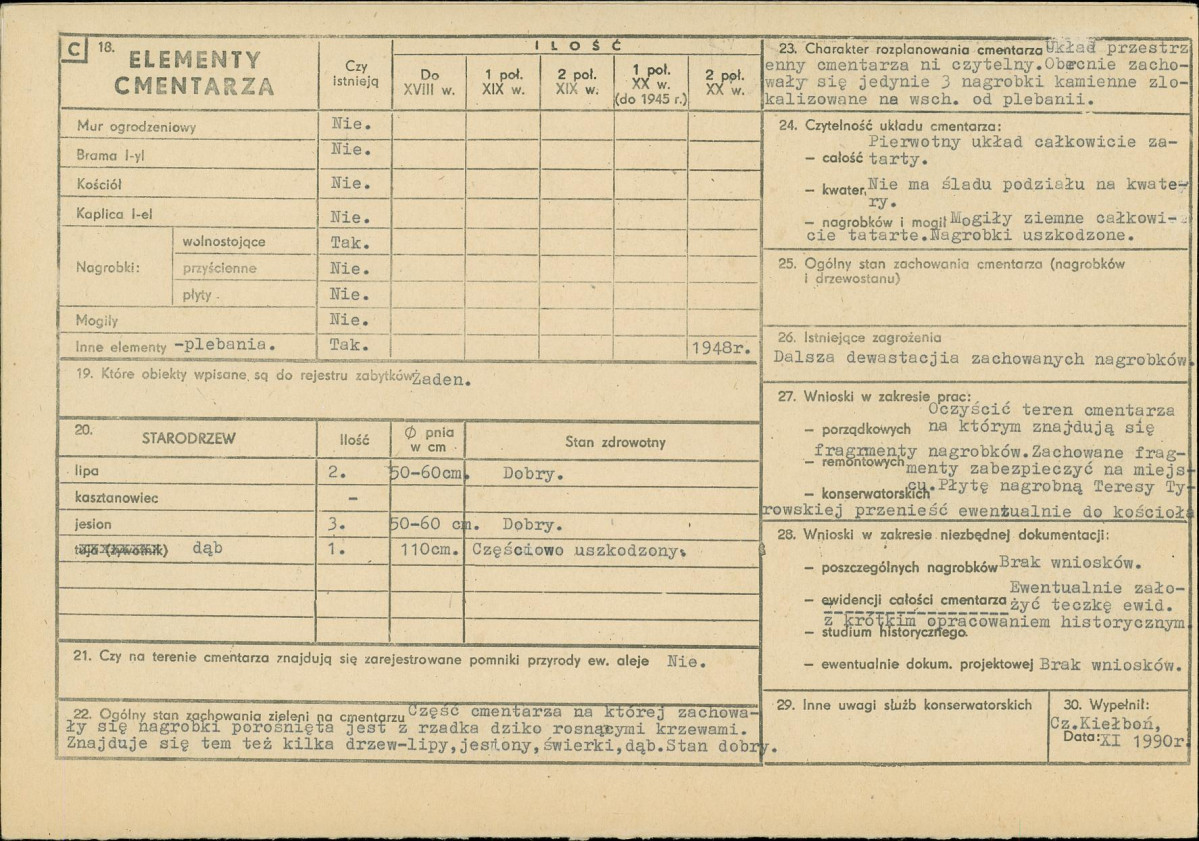 C 18. ELEMENTY
CMENTARZA
Czy
istnieją
ILOŚĆ
Do
XVIII w.
1 poł.
XIX w.
2 poł.
XIX w.
1 poł.
XX w.
(do 1945 r.)
2 poł.
XX w.
Mur ogrodzeniowy Nie.
Brama I-yl Nie.
Kościół Nie.
Kaplica I-el Nie.
Nagrobki:
wolnostojące Tak.
przyścienne Nie.
płyty Nie.
Mogiły Nie.
Inne elementy -plebania. Tak. 1948r.
19. Które obiekty wpisane są do rejestru zabytków Żaden.
20. STARODRZEW
Ilość
Ø pnia
w cm
Stan zdrowotny
lipa 2. 50-60cm. Dobry.
kasztanowiec -
jesion 3. 50-60 cm. Dobry.
tuja (żywotnik) dąb 1. 110cm. Częściowo uszkodzony.
21. Czy na terenie cmentarza znajdują się zarejestrowane pomniki przyrody ew. aleje Nie.
22. Ogólny stan zachowania zieleni na cmentarzu Część cmentarza na której zachowa-
ły się nagrobki porośnięta jest z rzadka dziko rosnącymi krzewami.
Znajduje się tem też kilka drzew-lipy,jesiony,świerki,dąb.Stan dobry.
23. Charakter rozplanowania cmentarza Układ przestrz
enny cmentarza ni czytelny.Obecnie zacho-
wały się jedynie 3 nagrobki kamienne zlo-
kalizowane na wsch. od plebanii.
24. Czytelność układu cmentarza:
Pierwotny układ całkowicie za-
- całość tarty.
- kwater, Nie ma śladu podziału na kwate-
ry.
- nagrobków i mogił Mogiły ziemne całkowi-
cie tatarte.Nagrobki uszkodzone.
25. Ogólny stan zachowania cmentarza (nagrobków
i drzewostanu)
26. Istniejące zagrożenia
Dalsza dewastacjia zachowanych nagrobków.
27. Wnioski w zakresie prac:
Oczyścić teren cmentarza
- porządkowych na którym znajdują się
fragmenty nagrobków.Zachowane frag-
- remontowych menty zabezpieczyć na miejs-
cu.Płytę nagrobną Teresy Ty-
- konserwatorskich
rowskiej przenieść ewentualnie do kościoła
28. Wnioski w zakresie niezbędnej dokumentacji:
- poszczególnych nagrobków Brak wniosków.
Ewentualnie zało-
- ewidencji całości cmentarza żyć teczkę ewid.
z krótkim opracowaniem historycznym.
- studium historycznego.
- ewentualnie dokum. projektowej Brak wniosków.
29. Inne uwagi służb konserwatorskich
30. Wypełnił:
Cz.Kiełboń,
Data: XI 1990r.